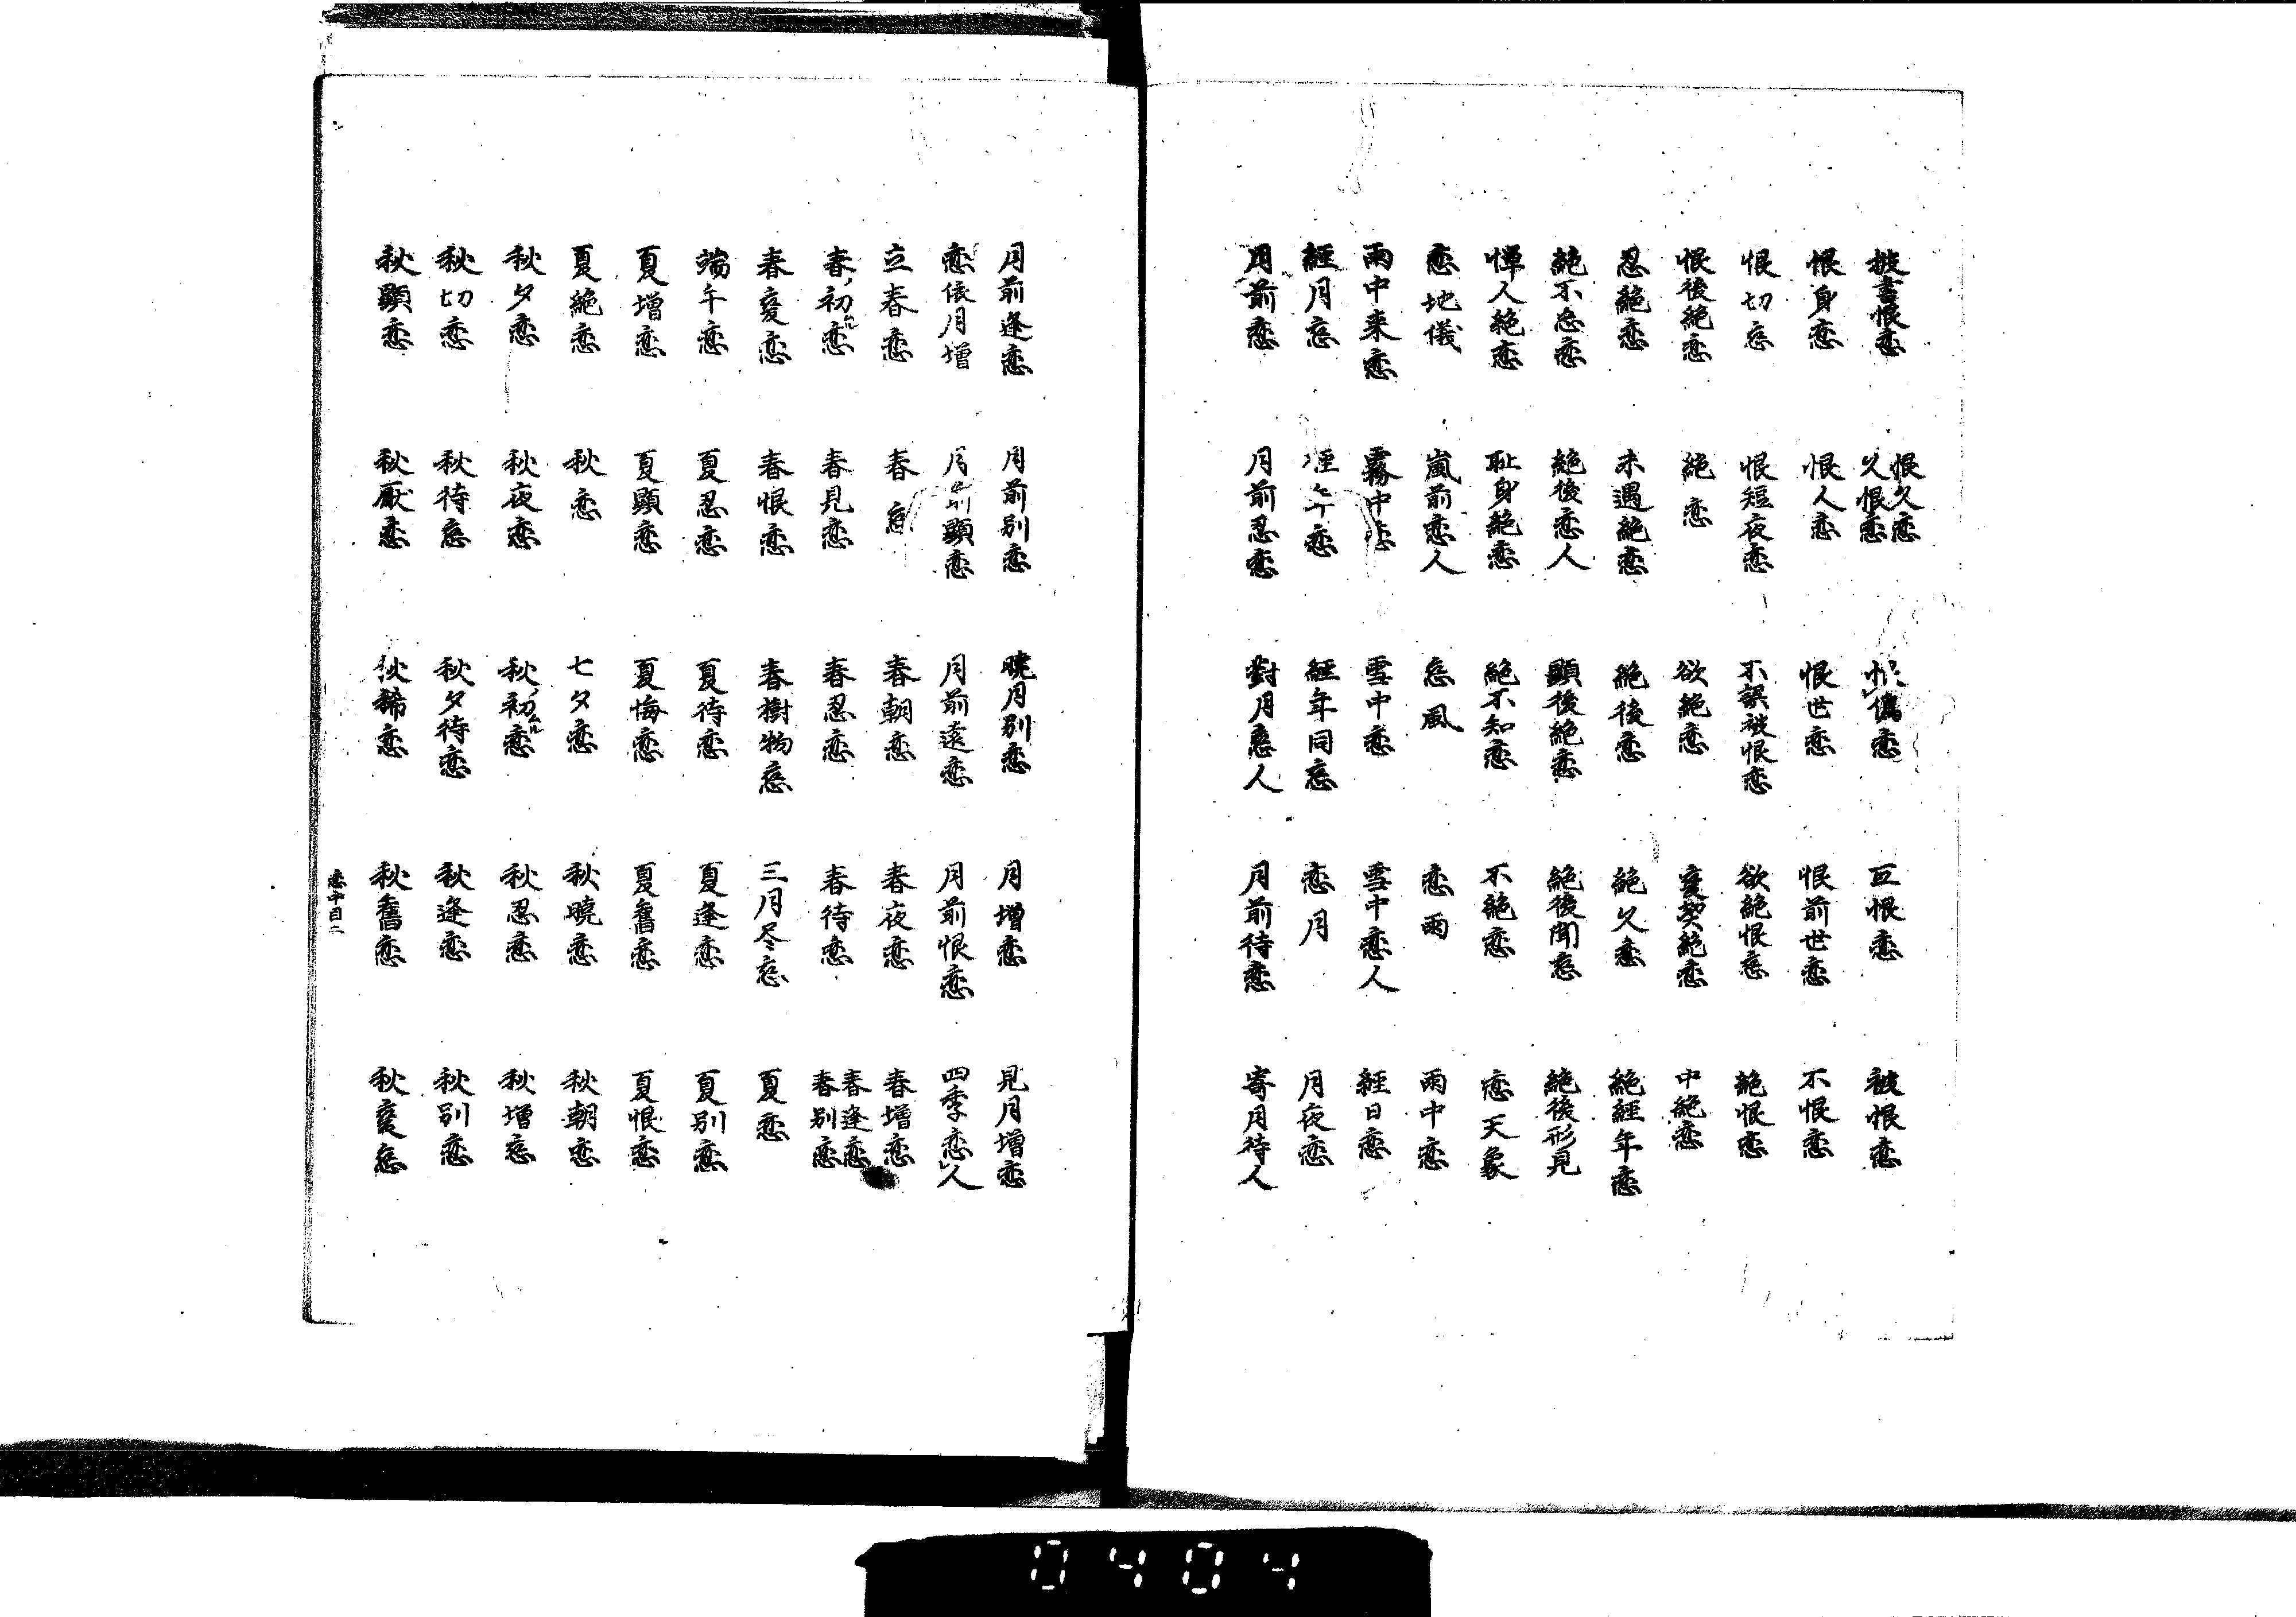 披書恨恋 恨久恋 久恨恋 恨偽恋 互恨恋 被恨恋
恨身恋 恨人恋 恨世恋 恨前世恋 不恨恋
恨切恋 恨短夜恋 不誤被恨恋 欲絶恨恋 絶恨恋
恨後絶恋 絶恋 欲絶恋 変契絶恋 中絶恋
忍絶恋 未遇絶恋 絶後恋 絶久恋 絶経年恋
絶不忘恋 絶後恋人 顕後絶恋 絶後聞恋 絶後形見
憚人絶恋 恥身絶恋 絶不知恋 不絶恋 恋天象
恋地儀 嵐前恋人 恋風 恋雨 雨中恋
雨中来恋 霧中恋 雪中恋 雪中恋人 経日恋
経月恋 経年恋 経年同恋 恋月 月夜恋
月前恋 月前忍恋 對月恋人 月前待恋 寄月待人
月前逢恋 月前別恋 暁月別恋 月増恋 見月増恋
恋依月増 月前顕恋 月前遠恋 月前恨恋 四季恋人
立春恋 春恋 春朝恋 春夜恋 春増恋
春初恋 春見恋 春忍恋 春待恋 春逢恋 春別恋
春変恋 春恨恋 春樹物恋 三月尽恋 夏恋
端午恋 夏忍恋 夏待恋 夏逢恋 夏別恋
夏増恋 夏顕恋 夏悔恋 夏舊恋 夏恨恋
夏絶恋 秋恋 七夕恋 秋暁恋 秋朝恋
秋夕恋 秋夜恋 秋初恋 秋忍恋 秋増恋
秋切恋 秋待恋 秋夕待恋 秋逢恋 秋別恋
秋顕恋 秋厭恋 秋稀恋 秋舊恋 秋変恋
0404